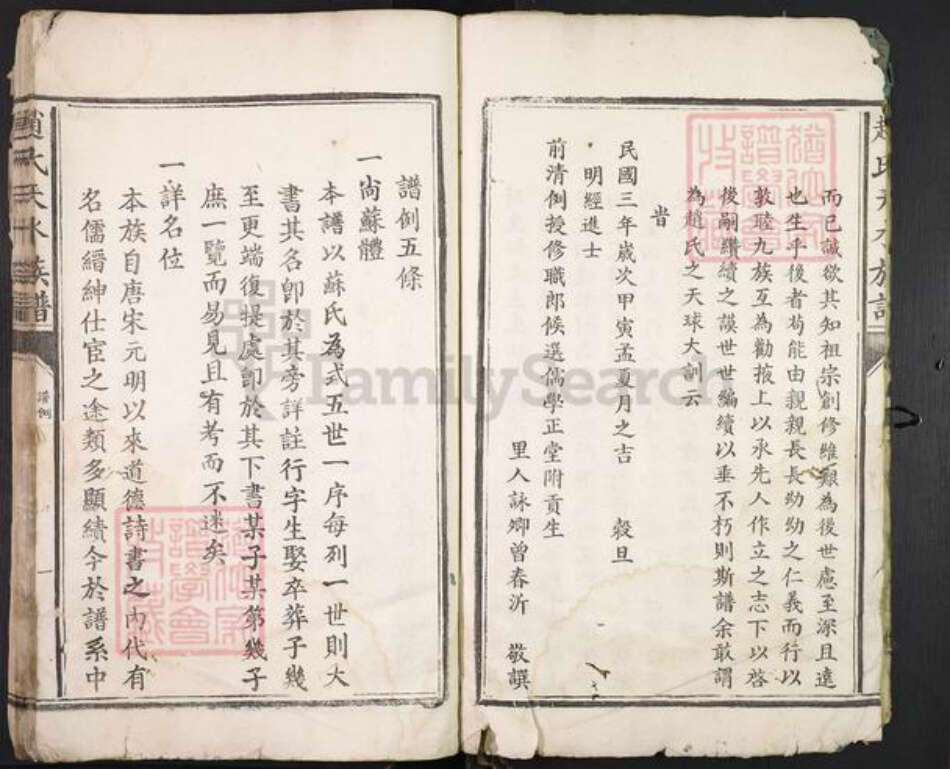 趙氏天水族譜
而已誠欲其知祖宗創修維艱為後世慮至深且遠
也生乎後者苟能由親親長長幼幼之仁義而行以
敦睦九族互為勸掖上以承先人作立之志下以啓
後嗣纘續之謨世世編續以垂不朽則斯譜余敢謂
為趙氏之天球大訓云
旹
民國三年歲次甲寅孟夏月之吉 穀旦
明經進士
前清例授修職郎候選儒學正堂附貢生
里人詠卿曾春沂 敬譔
譜例五條
一尚蘇體
本譜以蘇氏為式五世一序每列一世則大
書其名卽於其旁詳註行字生娶卒葬子幾
至更端復提處卽於其下書某子某第幾子
庶一覽而易見且有考而不迷矣
一詳名位
本族自唐宋元明以來道德詩書之內代有
名儒縉紳仕宦之途類多顯績今於譜系中
趙氏天水族譜
譜例
一
FamilySearch